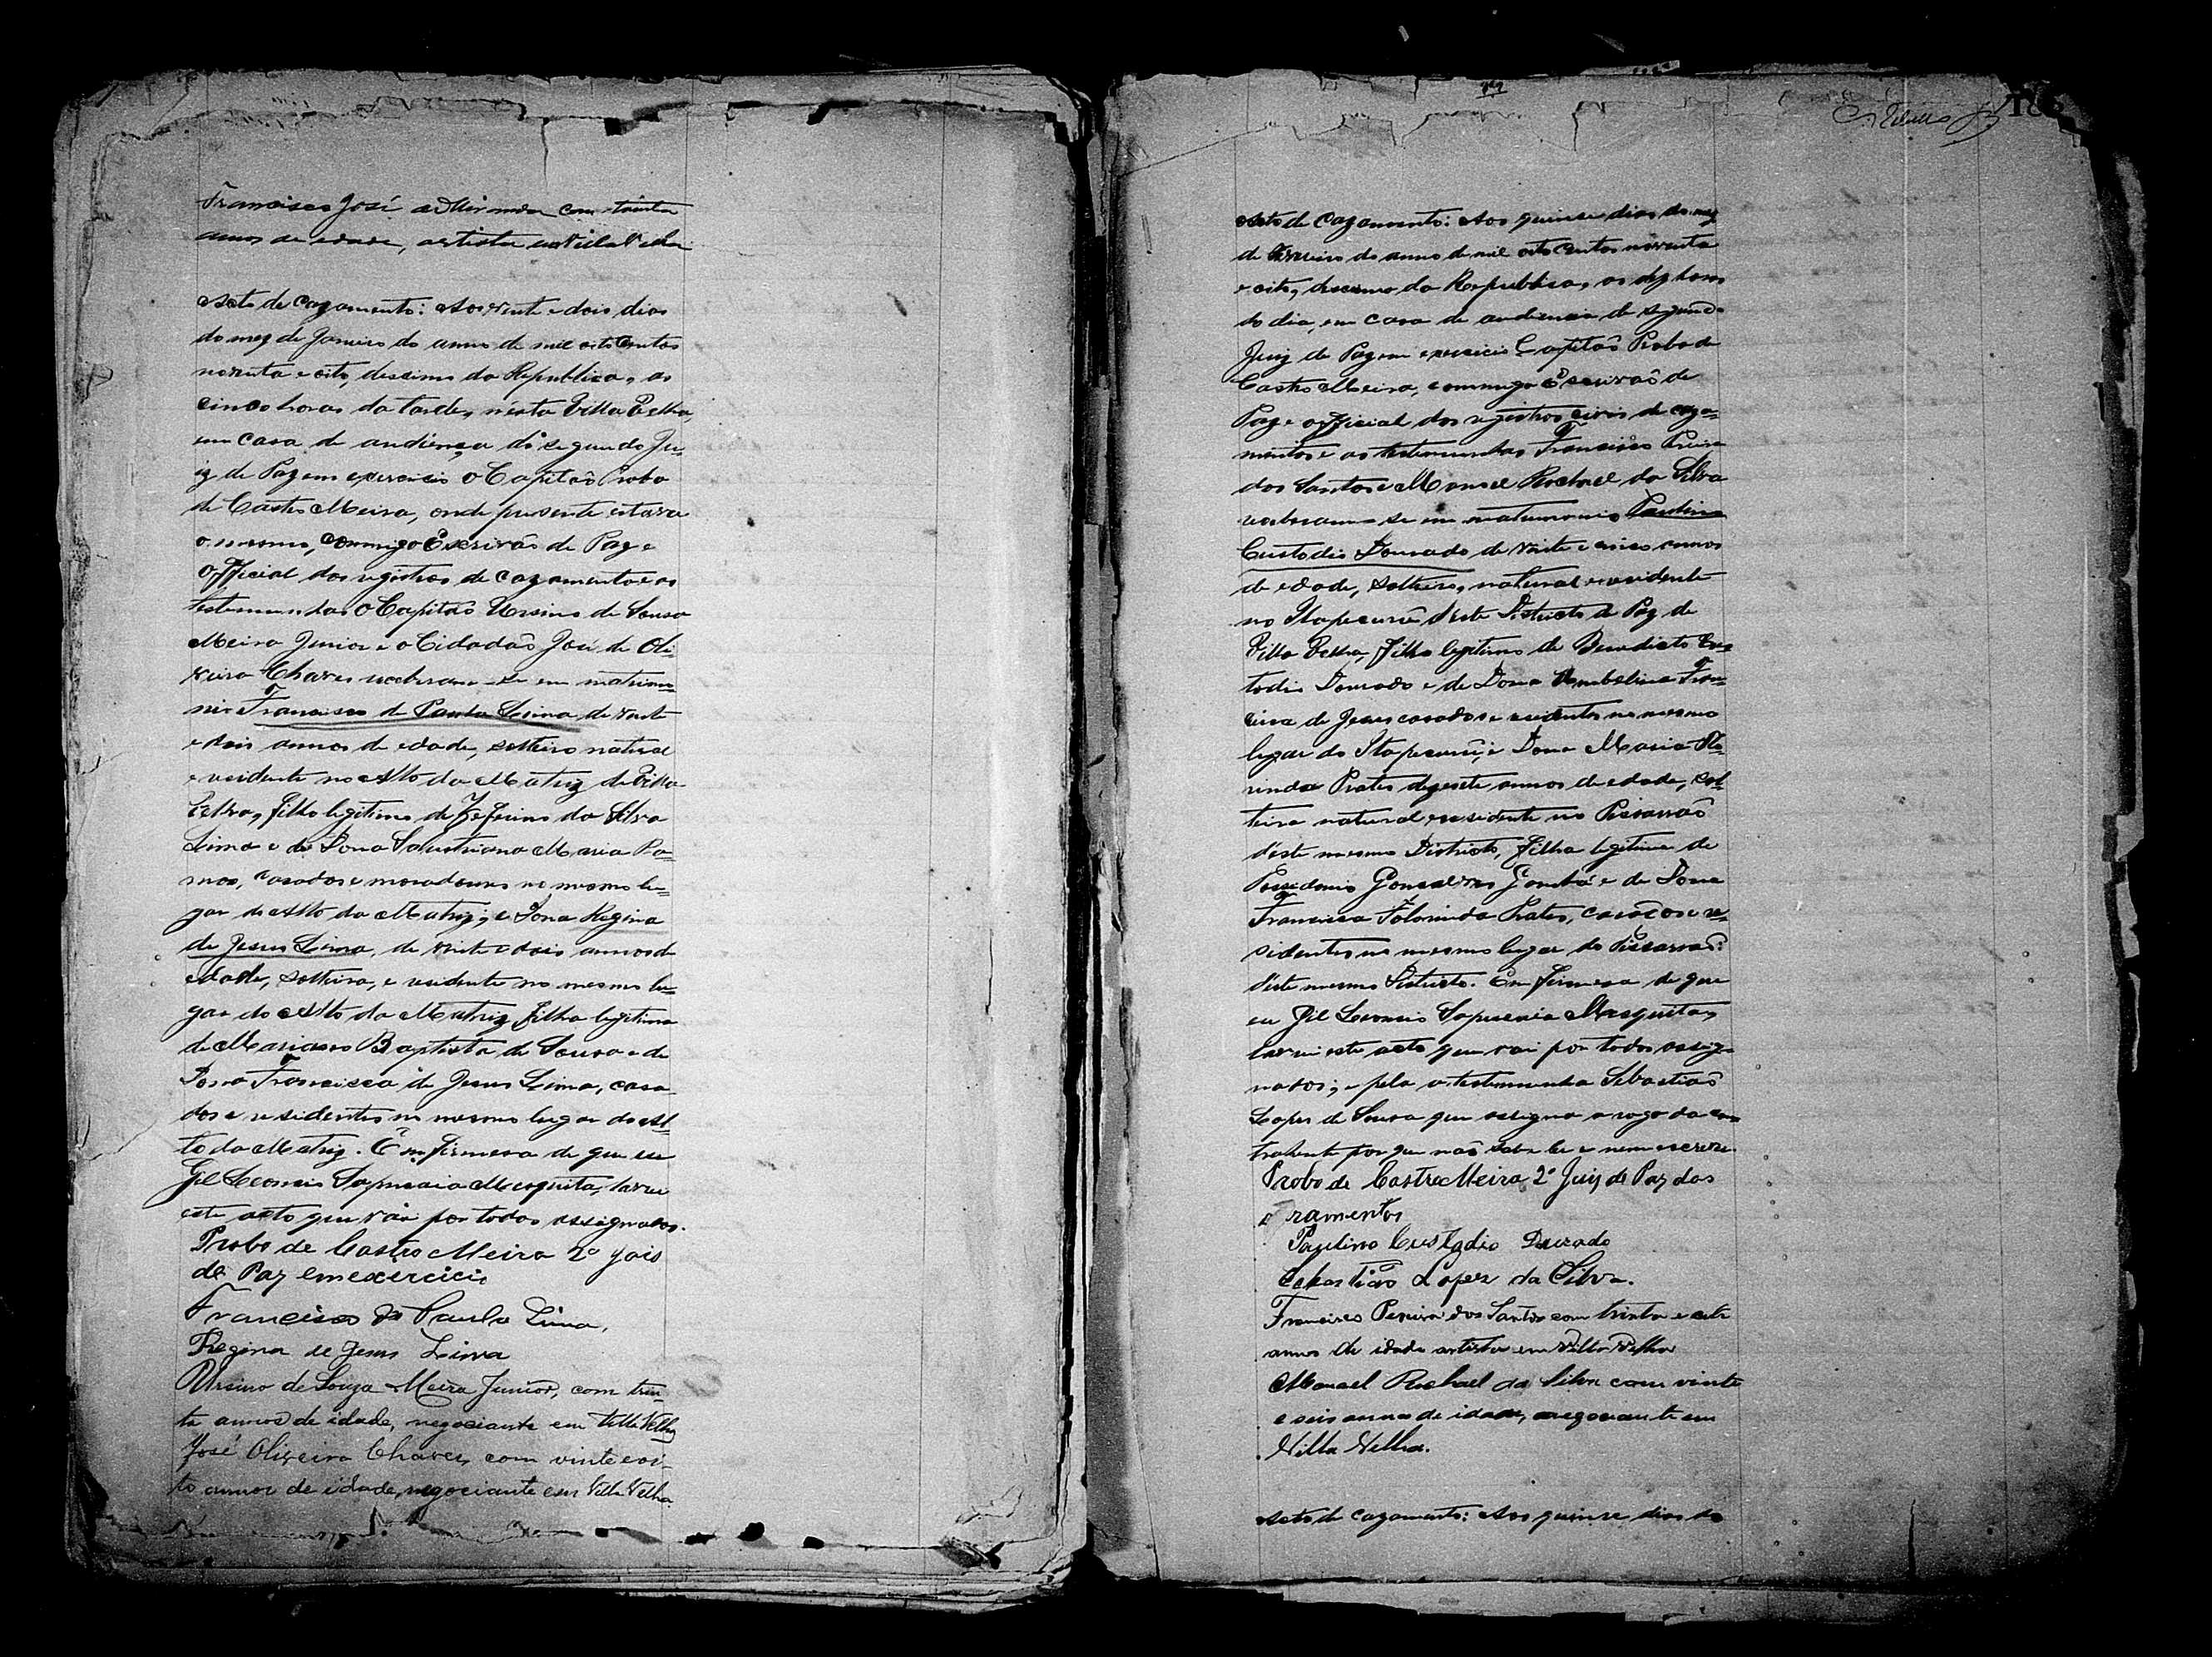 Francisco José de Miranda com trinta
annos de edade, artista em Villa Velha
Acto de cazamento: Aos vinte e dois dias
do mez de Janeiro do anno de mil oito centos
noventa e oito, descimo da Republica, as
cinco horas da tarde, nésta Villa Velha,
em casa de audiença do segundo Ju-
iz de Paz em exercicio o Capitaõ Probo
de Castro Meira, onde presente estava
o mesmo, commigo Escrivaõ de Paz e
Official dos registros de cazamento e as
testemunhas o Capitaõ Ursino de Sousa
Meira Junior e o Cidadaõ José de Oli-
veira Chaves receberam-se em matrimo-
nio Francisco de Paula Lima de vinte
e dois annos de edade, solteiro natural
e residente no Alto da Matriz de Villa
Velha, filho legitimo de Zeferino da Silva
Lima e de Dona Salustriana Maria Ra-
mos, casados e moradores no mesmo lu-
gar do Alto da Matriz, e Dona Regina
de Jesus Lima, de vinte e dois annos de
edade, solteira, e residente no mesmo lu-
gar do Alto da Matriz filha legitima
de Mariano Baptista de Sousa e de
Dona Francisca de Jesus Lima, casa-
dos e residentes no mesmo lugar do Al-
to da Matriz. Em firmesa de que eu
Gil Leoncio Sapucaia Mesquita, lavrei
este acto que vai por todos assignados.
Probo de Castro Meira 2º Jois
de Paz em exercicio
Francisco de Paula Lima,
Regina de Jesus Lima
Ursino de Souza Meira Junior, com trin-
ta annos de idade, negociante em Villa Velha
José Oliveira Chaves, com vinte e oi-
to annos de idade, negociante em Villa Velha.
Acto de cazamento: Aos quinse dias do mez
de Fevereiro do anno de mil oito centos noventa
e oito, descimo da Republica, as dez horas
do dia, em casa de audiencia do segundo
Juiz de Paz em exercicio Capitaõ Probo de
Castro Meira, commigo Escrivaõ de
Paz e official dos registros civis de caza-
mentos e as testemunhas Francisco Pereira
dos Santos e Manoel Rachael da Silva
receberam-se em matrimonio Paulino
Custodio Dourado de vinte e cinco annos
de edade, solteiro, natural e residente
no Itapecurú deste Districto de Paz de
Villa Velha, filho legitimo de Benedicto Cus-
todio Dourado e de Dona Umbelina Fran-
cisca de Jesus casados e residentes no mesmo
lugar do Itapecurú, e Dona Maria Flo-
rinda Prates dezesete annos de edade, sol-
teira natural e residente no Pissarraõ
d'éste mesmo Districto, filha legitima de
Possidonio Gonsalves e de Dona
Francisca Florinda Prates, casados e re-
sidentes no mesmo lugar do Pissarraõ
d'éste mesmo Districto. Em firmesa de que
eu Gil Leoncio Sapucaia Mesquita,
lavrei este acto que vai por todos assig-
nados; e pela a testemunha Sebastiaõ
Lopes de Sousa que assigna a rogo da con-
trahente por que naõ sabe ler e nem escrever.
Probo de Castro Meira 2º Juiz de Paz dos
ramentos
Paulino Custodio Dourado
Sebastiaõ Lopes da Silva.
Francisco Pereira dos Santos com trinta e sete
annos de idade artista em Villa Velha
Manoel Rachael da Silva com vinte
e seis annos de idade, negociante em
Villa Velha.
Acto de cazamento: Aos quinse dias do